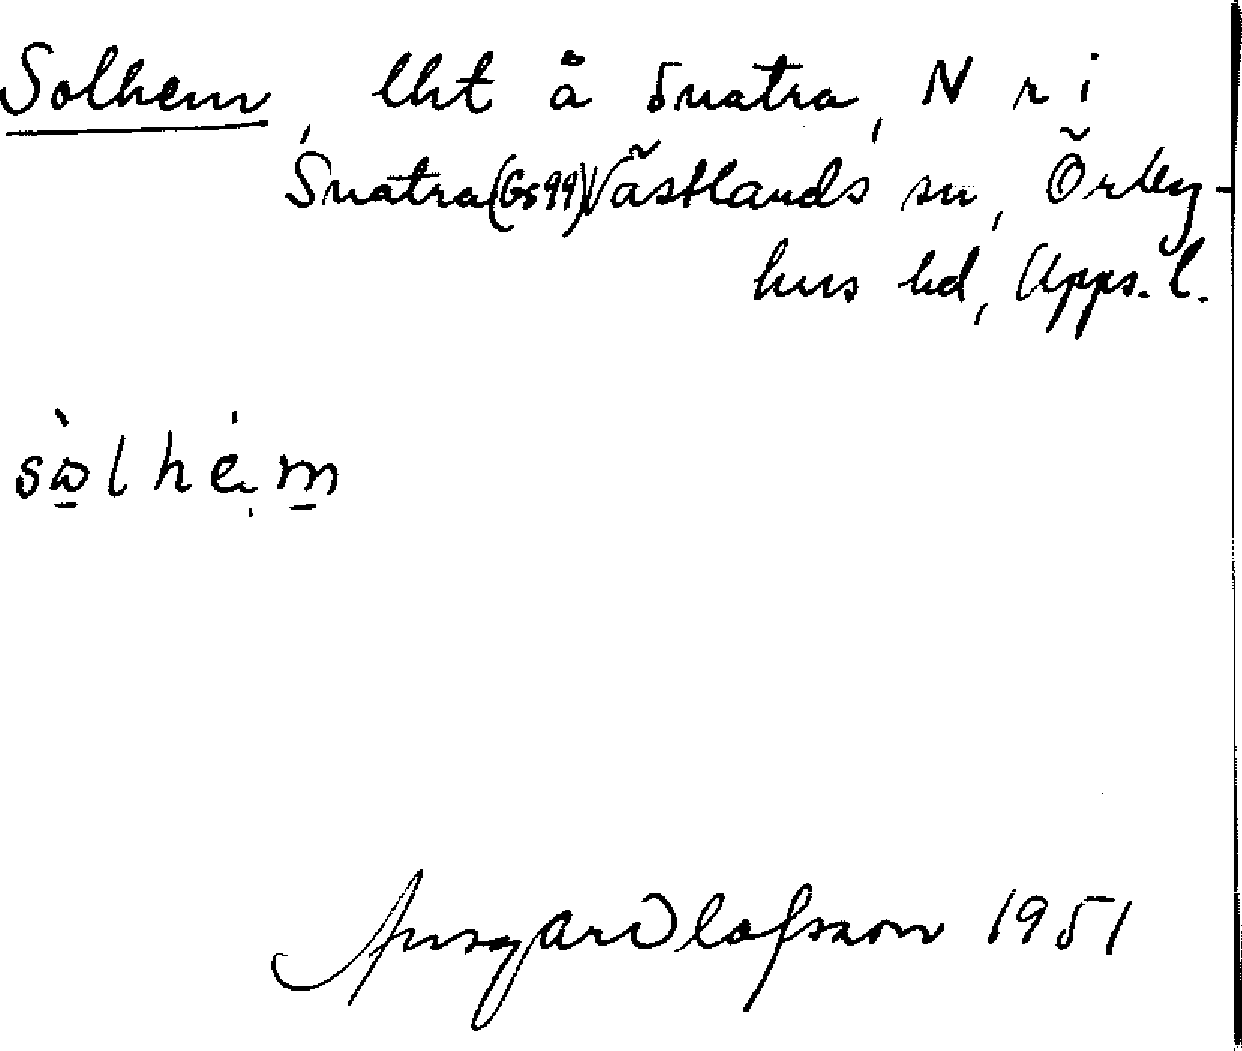 Solhem, lht å Snatra, N r i
Snatra (Gs 99) Västlands sn, Örby-
hus hd, Upps. l.
sὼlhėm
Ansgar Olofsson 1951